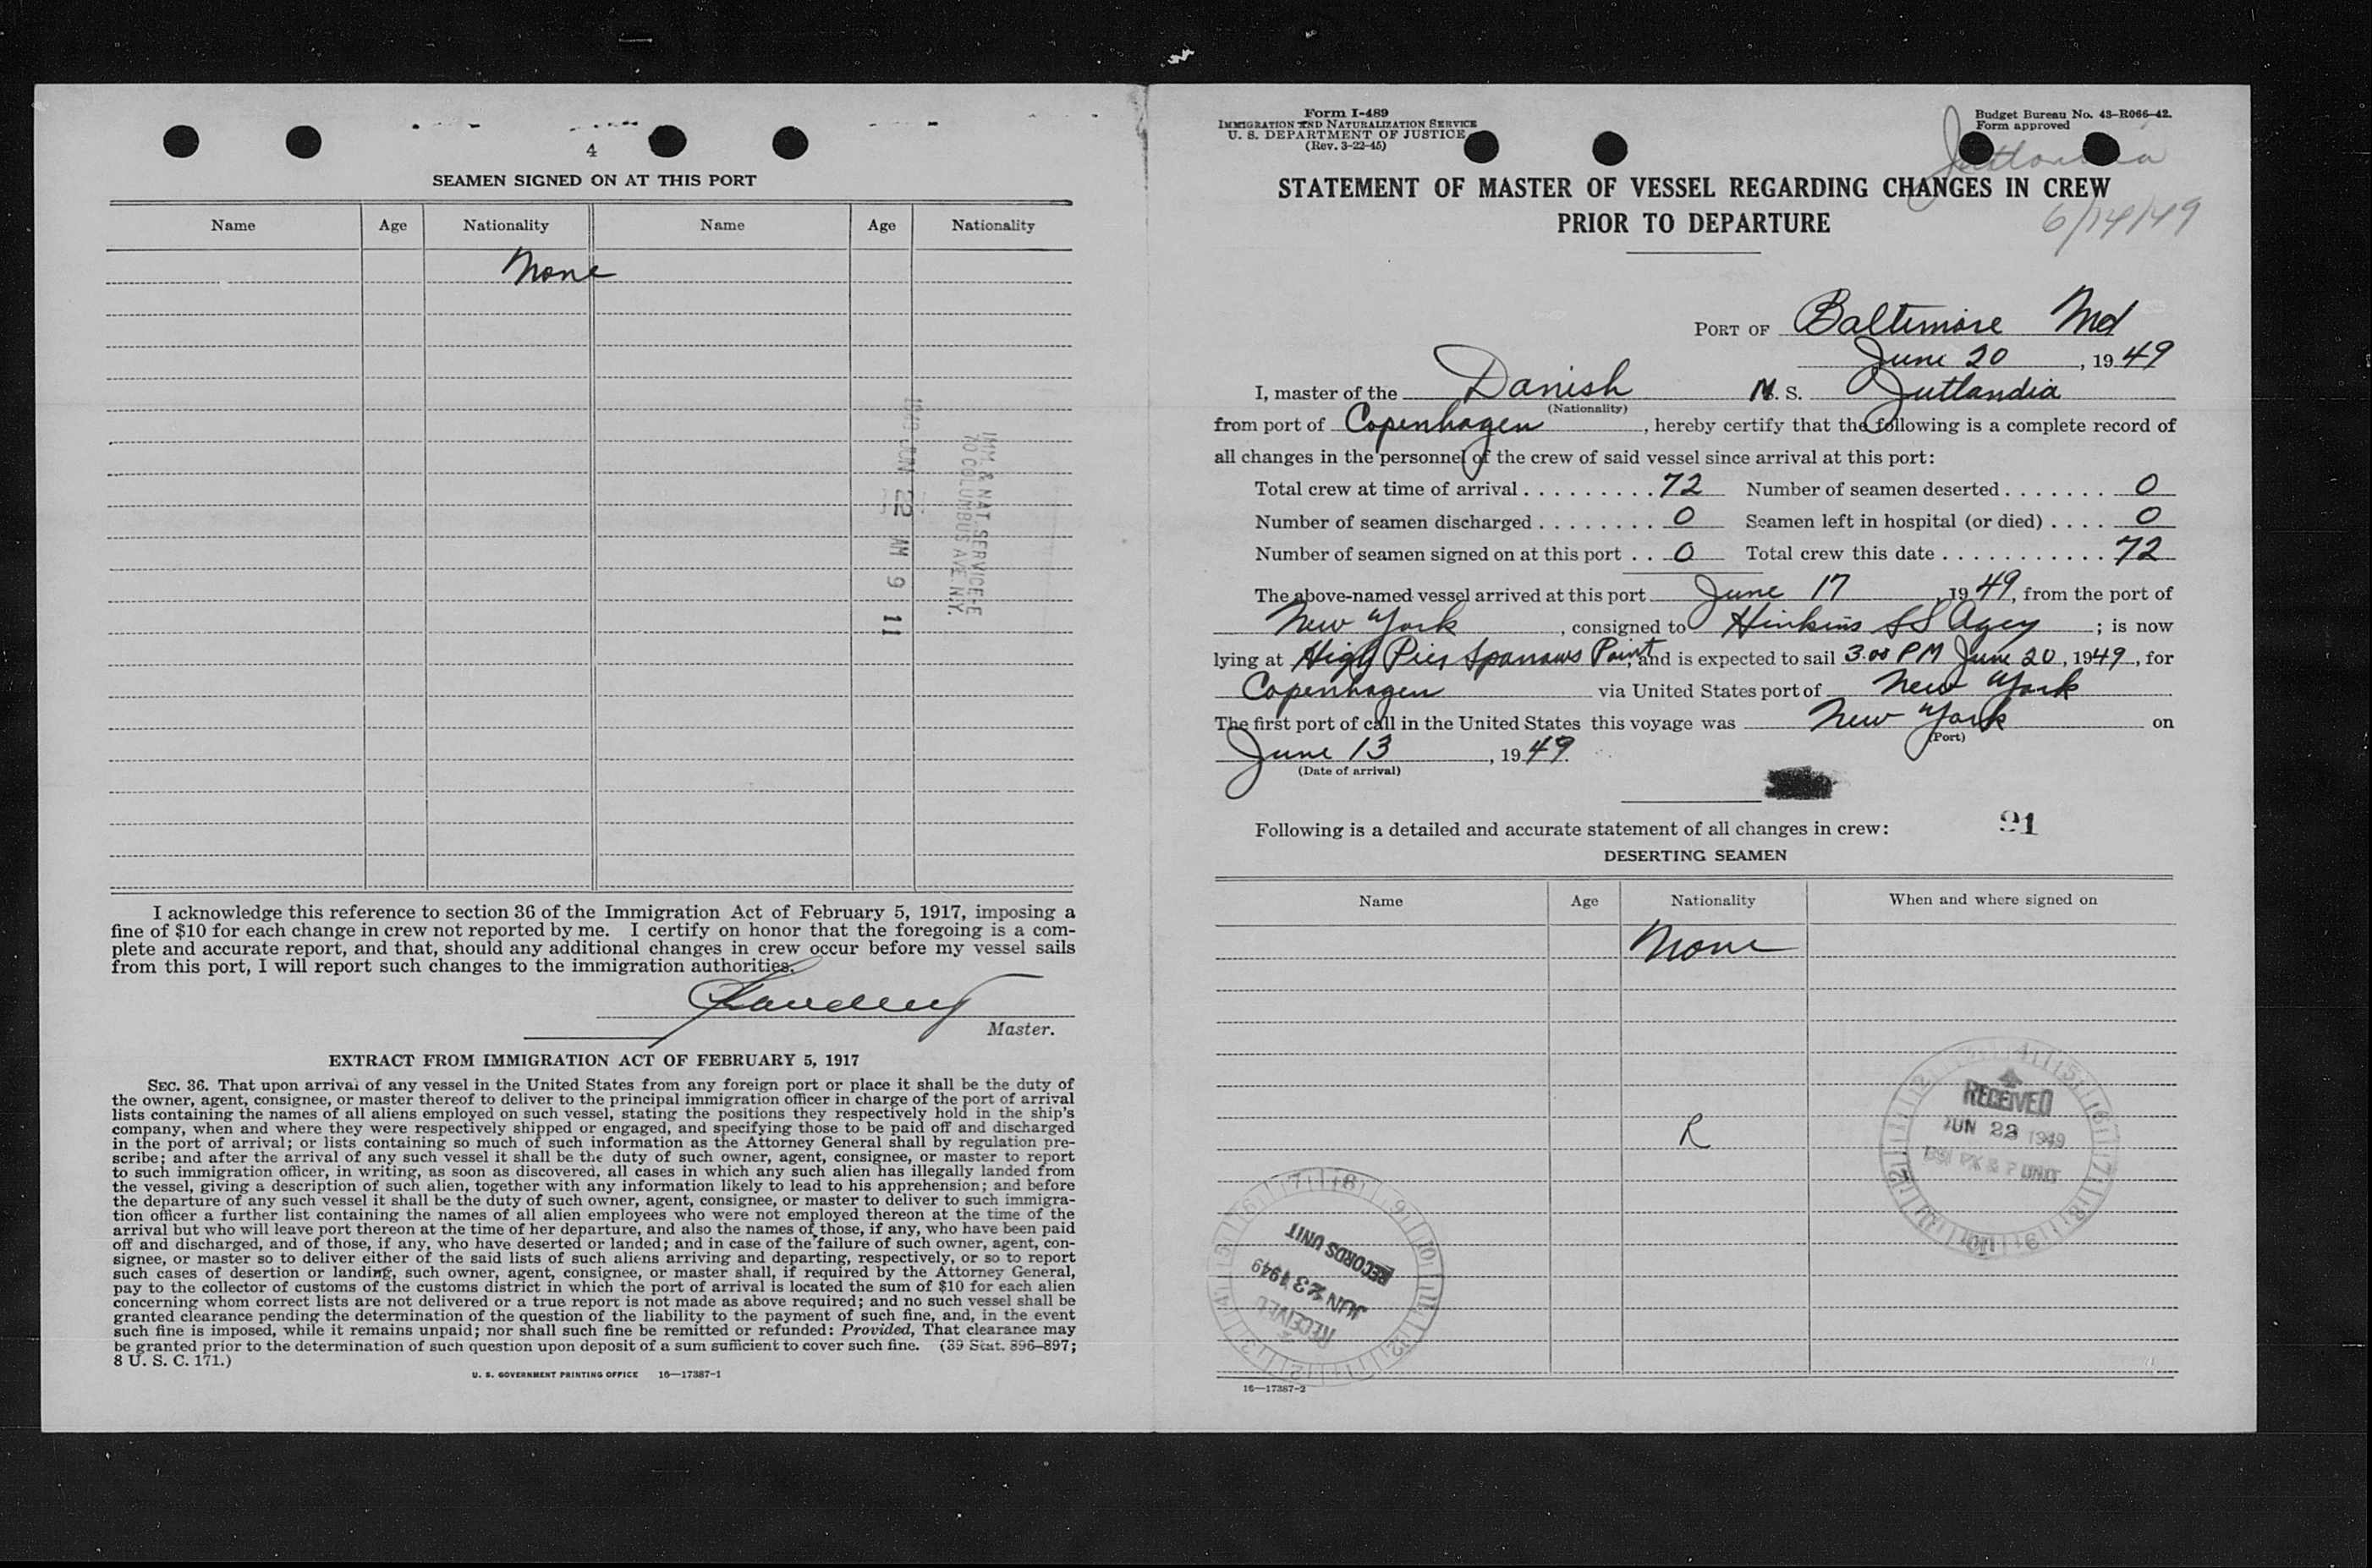 4
SEAMEN SIGNED ON AT THIS PORT
Name Age Nationality Name Age Nationality
None
1949 JUN 22 AM 9 11
IMM. & NAT. SERVICE-E
70 COLUMBUS AVE. N.Y.
I acknowledge this reference to section 36 of the Immigration Act of February 5, 1917, imposing a
fine of $10 for each change in crew not reported by me. I certify on honor that the foregoing is a com-
plete and accurate report, and that, should any additional changes in crew occur before my vessel sails
from this port, I will report such changes to the immigration authorities.
Master.
EXTRACT FROM IMMIGRATION ACT OF FEBRUARY 5, 1917
SEC. 36. That upon arrival of any vessel in the United States from any foreign port or place it shall be the duty of
the owner, agent, consignee, or master thereof to deliver to the principal immigration officer in charge of the port of arrival
lists containing the names of all aliens employed on such vessel, stating the positions they respectively hold in the ship's
company, when and where they were respectively shipped or engaged, and specifying those to be paid off and discharged
in the port of arrival; or lists containing so much of such information as the Attorney General shall by regulation pre-
scribe; and after the arrival of any such vessel it shall be the duty of such owner, agent, consignee, or master to report
to such immigration officer, in writing, as soon as discovered, all cases in which any such alien has illegally landed from
the vessel, giving a description of such alien, together with any information likely to lead to his apprehension; and before
the departure of any such vessel it shall be the duty of such owner, agent, consignee, or master to deliver to such immigra-
tion officer a further list containing the names of all alien employees who were not employed thereon at the time of the
arrival but who will leave port thereon at the time of her departure, and also the names of those, if any, who have been paid
off and discharged, and of those, if any, who have deserted or landed; and in case of the failure of such owner, agent, con-
signee, or master so to deliver either of the said lists of such aliens arriving and departing, respectively, or so to report
such cases of desertion or landing, such owner, agent, consignee, or master shall, if required by the Attorney General,
pay to the collector of customs of the customs district in which the port of arrival is located the sum of $10 for each alien
concerning whom correct lists are not delivered or a true report is not made as above required; and no such vessel shall be
granted clearance pending the determination of the question of the liability to the payment of such fine, and, in the event
such fine is imposed, while it remains unpaid; nor shall such fine be remitted or refunded: Provided, That clearance may
be granted prior to the determination of such question upon deposit of a sum sufficient to cover such fine. (39 Stat. 896–897;
8 U. S. C. 171.)
U. S. GOVERNMENT PRINTING OFFICE 16—17387-1
Form I-489
IMMIGRATION AND NATURALIZATION SERVICE
U. S. DEPARTMENT OF JUSTICE
(Rev. 3-22-45)
Budget Bureau No. 43-R066-42.
Form approved
Jutlandia
6/14/49
STATEMENT OF MASTER OF VESSEL REGARDING CHANGES IN CREW
PRIOR TO DEPARTURE
PORT OF Baltimore Md
June 20, 1949
I, master of the Danish M. S. Jutlandia
(Nationality)
from port of Copenhagen, hereby certify that the following is a complete record of
all changes in the personnel of the crew of said vessel since arrival at this port:
Total crew at time of arrival 72 Number of seamen deserted 0
Number of seamen discharged 0 Seamen left in hospital (or died) 0
Number of seamen signed on at this port 0 Total crew this date 72
The above-named vessel arrived at this port June 17, 1949, from the port of
New York, consigned to Hinkins SS Agcy; is now
lying at High Pier Sparrows Point, and is expected to sail 3.00 PM June 20, 1949, for
Copenhagen via United States port of New York
The first port of call in the United States this voyage was New York on
(Port)
June 13, 1949.
(Date of arrival)
91
Following is a detailed and accurate statement of all changes in crew:
DESERTING SEAMEN
Name Age Nationality When and where signed on
None
R
RECEIVED
JUN 22 1949
RECORDS UNIT
JUN 23 1949
RECEIVED
16—17387-2